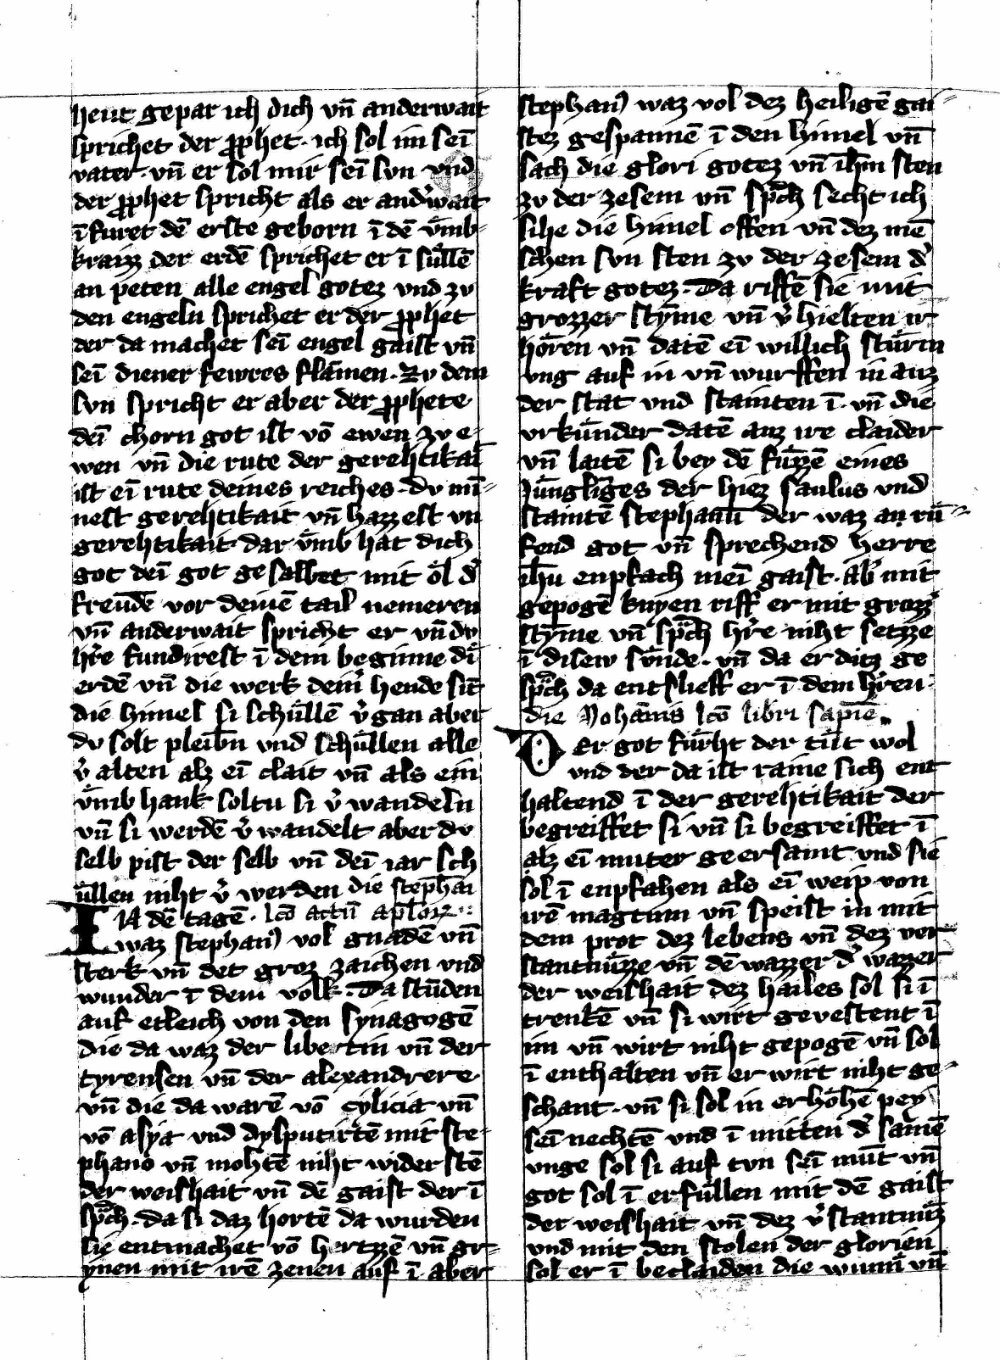 heut gepar ich dich vn̄ anderwait
sprichet der ꝓphet · ich sol im sei᷑n
vater · vn̄ er sol mir sein̄ sun vnd
der ꝓphet spricht als er and̓wait
ī furet dē erste geborn ī dē v̈mb-
kraizz der erdē sprichet er ī sullē
an peten alle engel gotez vnd zv
den engeln sprichet er der ꝓphet
der da machet sei᷑ engel gaist vn̄
sei᷑ diener fewres flāmen · Zv dem
svn spricht er aber der ꝓphete
dei᷑ chorn got ist vō ewen zv e-
wen vn̄ die rute der gerehtikait
ist ei᷑ rute deines reiches · dv mī-
nest gerehtikait vn̄ hazzest vn
gerehtikait dar v̈mb hat dich
got dei᷑ got gesalbet mit öl d̓
freudē vor deinē tail nemeren
vn̄ anderwait spricht er vn̄ dv
hr̓e fundirest ī dem beginne di
erdē vn̄ die werk dein̓ hende sīt
die himel si schüllē v̓gan aber
dv solt pleibn̄ vnd schüllen alle
v̓alten alz ei᷑ clait vn̄ als ein
v̈mbhank soltu si v̓wandeln
vn̄ si werdē v̓wandelt aber dv
selb pist der selb vn̄ dei᷑ iar sch
üllen niht v̓werden die stephani
IN dē tagē · lcō actū aplor̄
waz stephan9 vol gnadē vn̄
sterk vn̄ det groz zaichen vnd
wunder ī dem volk · Da stūden
auf etleich von den synagogē
die da waz der libertin vn̄ der
tyrensen vn̄ der alexandrere
vn̄ die da warē vō cylicia vn̄
vō asya vnd dysputirtē mit ste-
phano vn̄ mohtē niht widerstē
der weishait vn̄ dē gaist der ī
sp̄ch · da si daz hortē da wurden
sie entmachet vō hertzzē vn̄ gr-
ynen mit irē zenen auf ī aber
stephan9 waz vol dez heiligē gai-
stez gespannē ī den himel vn̄
sach die glori gotez vn̄ ih̄m sten
zv der zesem vn̄ sp̄ch secht ich
sihe die himel offen vn̄ dez mē
schen svn sten zv der zesem d̓
kraft gotez · Da riffē sie mit
grozzer stȳme vn̄ v̓hielten ir
hören vn̄ datē ei᷑ willich stürm
vng auf in vn̄ wurffen in auz
der stat vnd stainten ī · vn̄ die
vrkünder datē auz ire claider
vn̄ laitē si bey dē fuzzē eines
Jünglīges der hiez saulus vnd
staintē stephanū der waz an rü-
fend got vn̄ sprechend herre
ih̄u enpfach mei᷑ gaist · ab̓ mit
gepogē knyen riff er mit grozz̓
stȳme vn̄ sp̄ch hr̓e niht setzze
ī disew sünde · vn̄ da er ditz ge
sp̄ch da entslieff er ī dem hr̓en ·
die Johānis lcō libri sapiē
Der got fürht der tüt wol
vnd der da ist raine sich ent
haltend ī der gerehtikait der
begreiffet si vn̄ si begreiffet ī
alz ei᷑ muter geersamt vnd sie
sol ī enpfahen als ei᷑ weip von
irē magtum vn̄ speist in mit
dem prot dez lebens vn̄ dez ver
stantnüzze vn̄ dē wazzer d̓ wazzer
der weishait dez hailes sol si ī
trenkē vn̄ si wirt gevestent ī
im vn̄ wirt niht gepogē vn̄ sol
ī enthalten vn̄ er wirt niht ge-
schant · vn̄ si sol in erhöhē pey
sei᷑ nechtē vnd ī mitten d̓ samē
vnge sol si auf tvn sei᷑ mūt vn̄
got sol ī erfüllen mit dē gaist
der weishait vn̄ dez v̓stantnüz
vnd mit den stolen der glorien
sol er ī beclaiden die wunn̄ vn̄